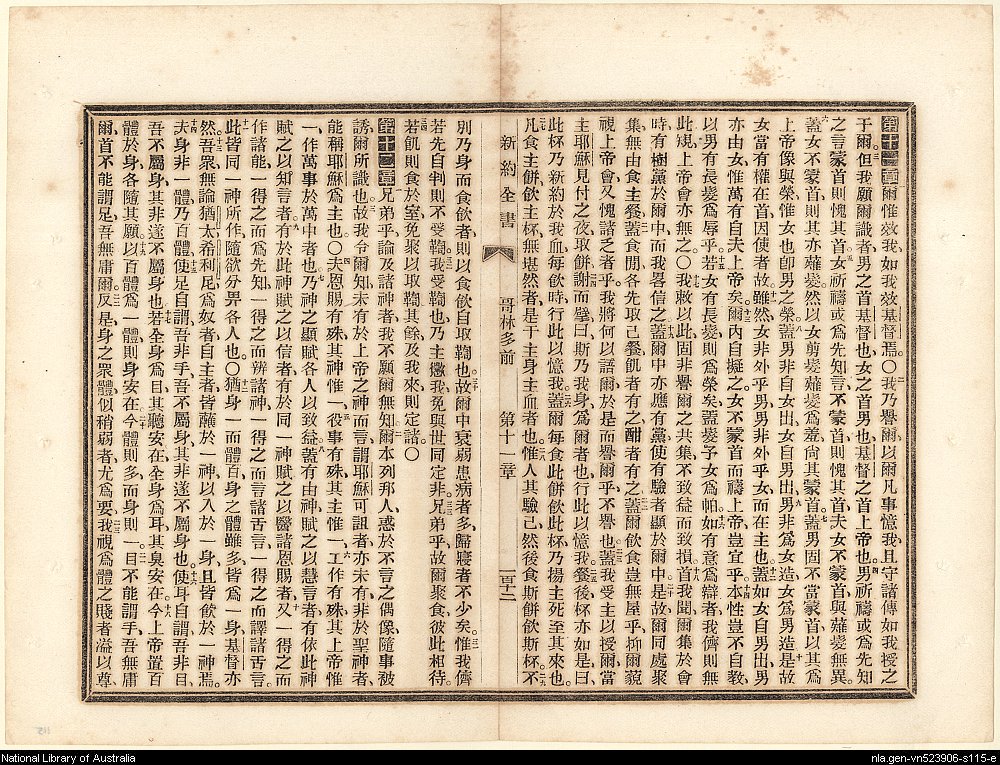 第十一章爾惟效我如我效基督焉〇我乃譽爾以爾凡事憶我且守諸傳如我授之
于爾但我願爾識者男之首基督也女之首男也基督之首上帝也男祈禱或爲先知
之言蒙首則愧其首女祈禱或爲先知言不蒙首則愧其首夫女不蒙首與薙鬘無異
蓋女不蒙首則其亦薙鬘然以女剪鬘薙鬘爲羞尙其蒙首蓋男固不當蒙首以其爲
上帝像與榮惟女也卽男之榮蓋男非自女出女自男出男非爲女造女爲男造是故
女當有權在首因使者故雖然女非外乎男男非外乎女而在主也蓋如女自男出男
亦由女惟萬有自夫上帝矣爾內自擬之女不蒙首而禱上帝豈宜乎本性豈不自敎
以男有長鬘爲辱乎若女有長鬘則爲榮矣蓋鬘予女爲帕如有意爲辯者我儕則無
此規上帝會亦無之〇我敕以此固非譽爾之共集不致益而致損首我聞爾集於會
時有樹黨於爾中而我畧信之蓋爾中亦應有黨使有驗者顯於爾中是故爾同處聚
集無由食主餐蓋食間各先取己餐飢者有之酣者有之蓋爾飲食豈無屋乎抑爾藐
視上帝會又愧諸乏者乎我將何以語爾於是而譽爾乎不譽也蓋我受主以授爾當
主耶穌見付之夜取餅謝而擘曰斯乃我身爲爾者也行此以憶我餐後杯亦如是曰
此杯乃新約於我血每飲時行此以憶我蓋爾每食此餅飲此杯乃揚主死至其來也
凡食主餅飲主杯無堪然者是干主身主血者也惟人其驗己然後食斯餅飲斯杯不
新約全書 哥林多前 第十一章 一百十二
別乃身而食飲者則以食飲自取鞫也故爾中衰弱患病者多歸寢者不少矣惟我儕
若先自判則不受鞫我受鞫也乃主懲我免與世同定非兄弟乎故爾聚食彼此相待
若飢則食於室免聚以取鞫其餘及我來則定諸〇
第十二章兄弟乎論及諸神者我不願爾無知爾本列邦人惑於不言之偶像隨事被
誘爾所識也故我令爾知未有於上帝之神而言謂耶穌可詛者亦未有非於聖神者
能稱耶穌爲主也〇夫恩賜有殊其神惟一役事有殊其主惟一工作有殊其上帝惟
一作萬事於萬中者也乃神之顯賦各人以致益蓋有由神賦之以慧言者有依此神
賦之以知言者有於此神賦之以信者有於同一神賦之以醫諸恩賜者又一得之而
作諸能一得之而爲先知一得之而辨諸神一得之而言諸舌言一得之而譯諸舌言
此皆同一神所作隨欲分畀各人也〇猶身一而體百身之體雖多皆爲一身基督亦
然吾衆無論猶太希利尼爲奴者自主者皆蘸於一神以入於一身且皆飲於一神焉
夫身非一體乃百體使足自謂吾非手吾不屬身其非遂不屬身也使耳自謂吾非目
吾不屬身其非遂不屬身也若全身爲目其聽安在全身爲耳其臭安在今上帝置百
體於身各隨其願以百體爲一體則身安在今體則多而身則一目不能謂手吾無庸
爾首不能謂足吾無庸爾反是身之衆體似稍弱者尤爲要我視爲體之賤者溢以尊
National Library of Australia
nla.gen-vn523906-s115-e